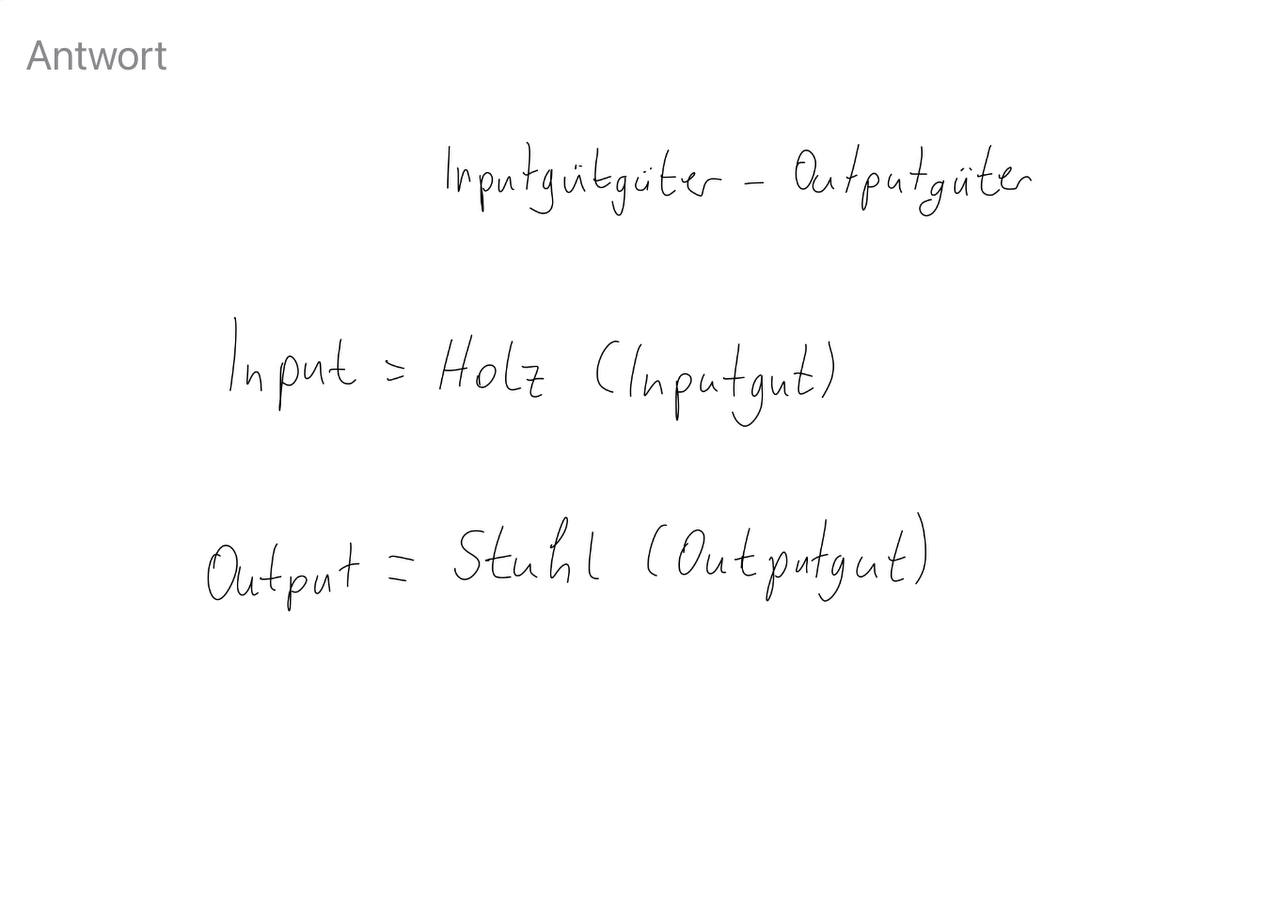 Antwort
Inputgütgüter - Outputgüter
Input = Holz (Inputgut)
Output = Stuhl (Outputgut)